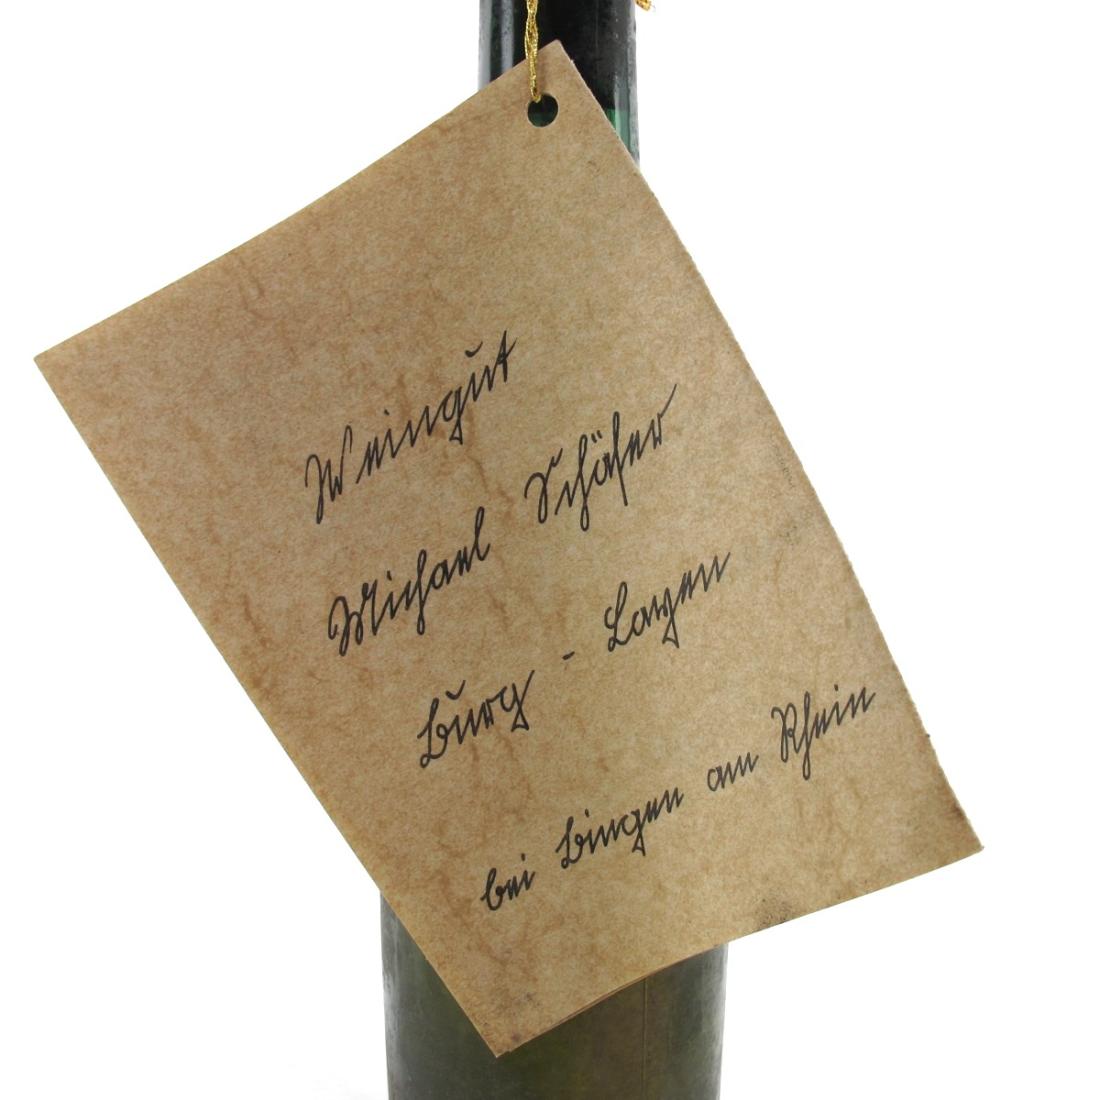 Weingut
Michael Schäfer
Burg - Layen
bei Bingen am Rhein